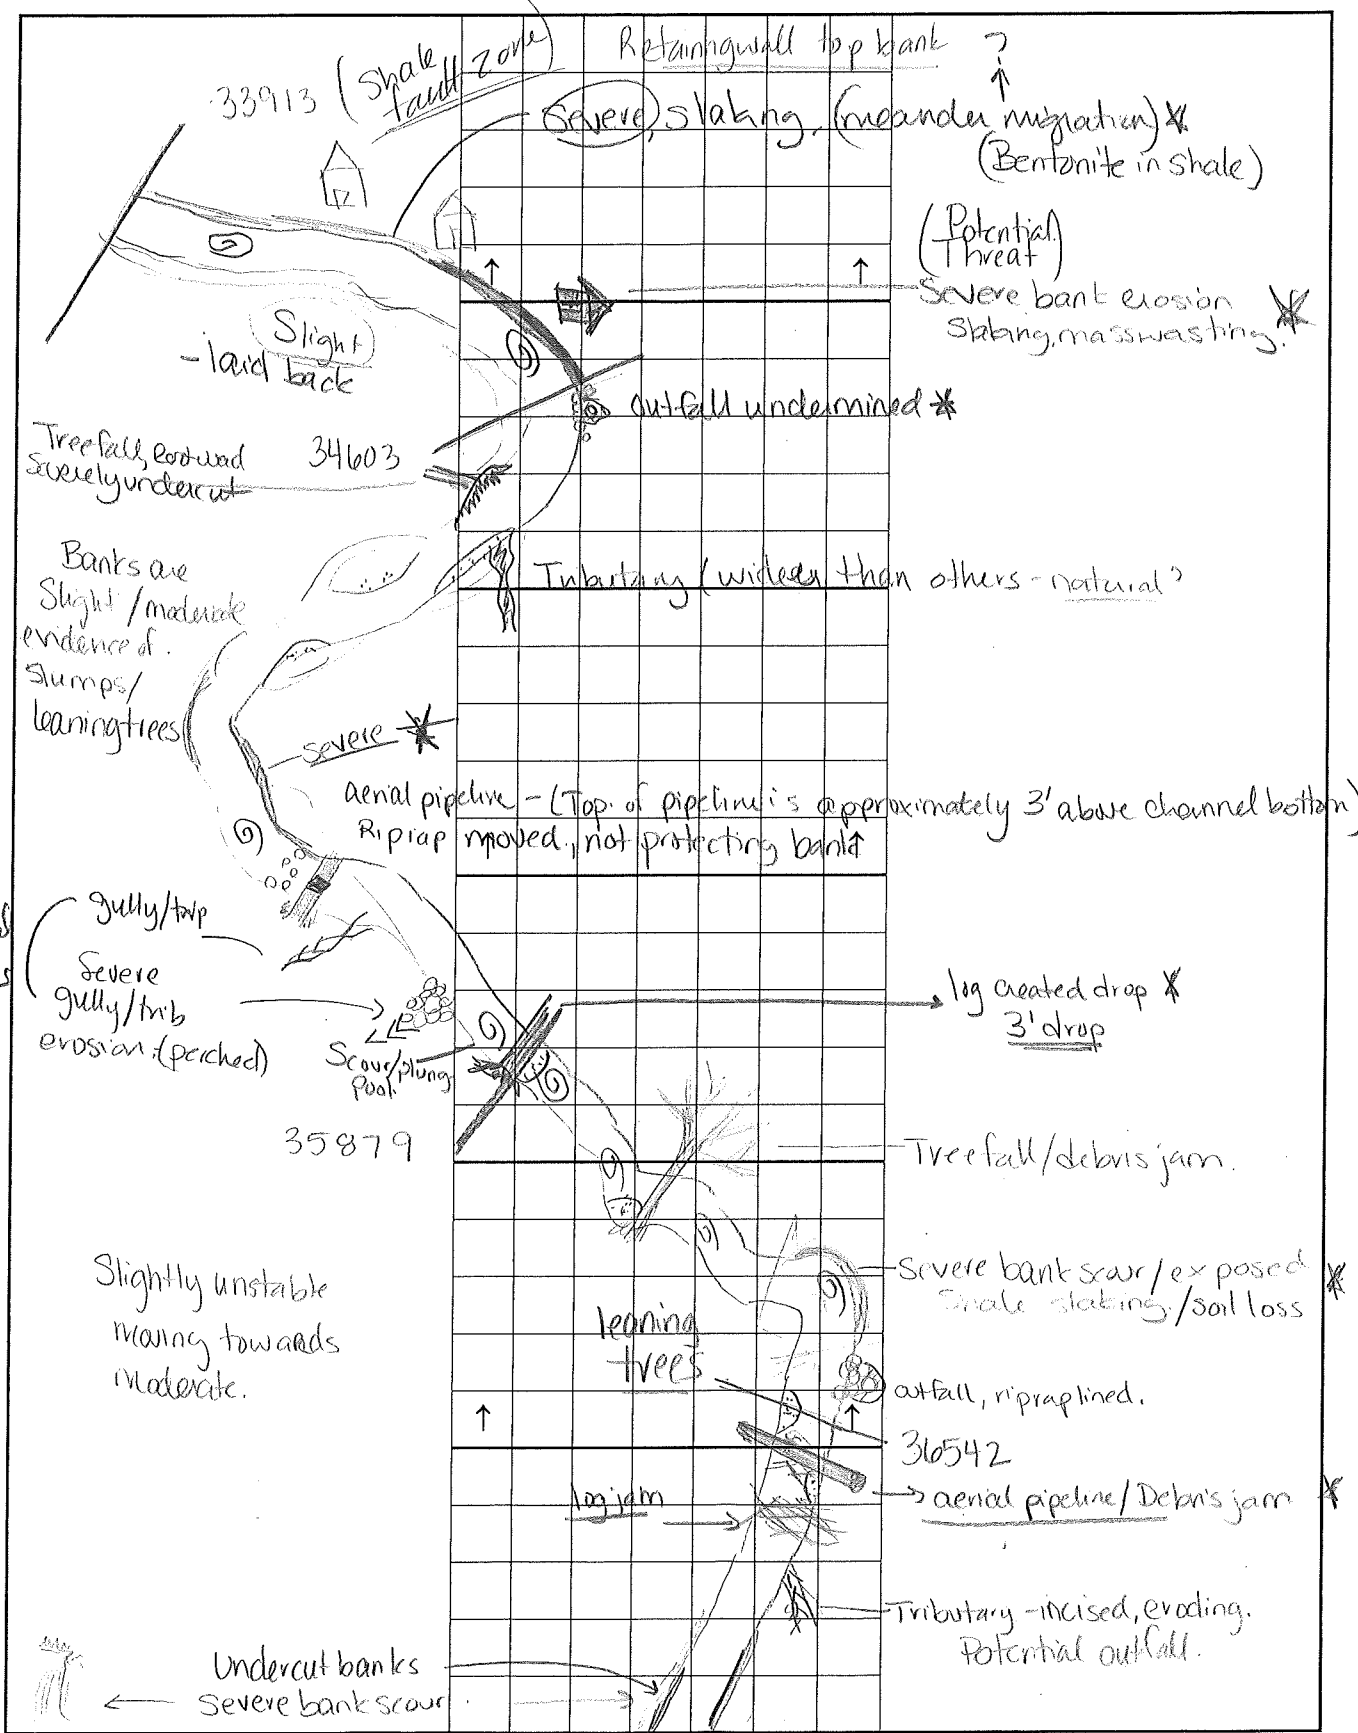 Retaining wall top bank ?
33913 (Shale
fault zone)
Severe, slaking, (meander migration)
(Bentonite in shale)
(Potential
Threat)
Severe bank erosion
Slaking, mass wasting.
Slight
- laid back
outfall undermined
Treefall, rootwad
severely undercut
34603
Banks are
Slight / moderate
evidence of.
Slumps/
leaning trees
Tributary (wider than others - natural?
severe
aerial pipeline - (Top of pipeline is approximately 3' above channel bottom)
Riprap moved, not protecting bank
gully/trip
Severe
gully/trib
erosion (perched)
Scour/plung
Pool.
log created drop
3' drop
35879
Treefall/debris jam.
Slightly unstable
moving towards
moderate.
Severe bank scour/exposed
Shale slaking./soil loss
leaning
trees
outfall, riprap lined.
36542
aerial pipeline/Debris jam
log jam
Tributary - incised, eroding.
Potential outfall.
Undercut banks
severe bank scour